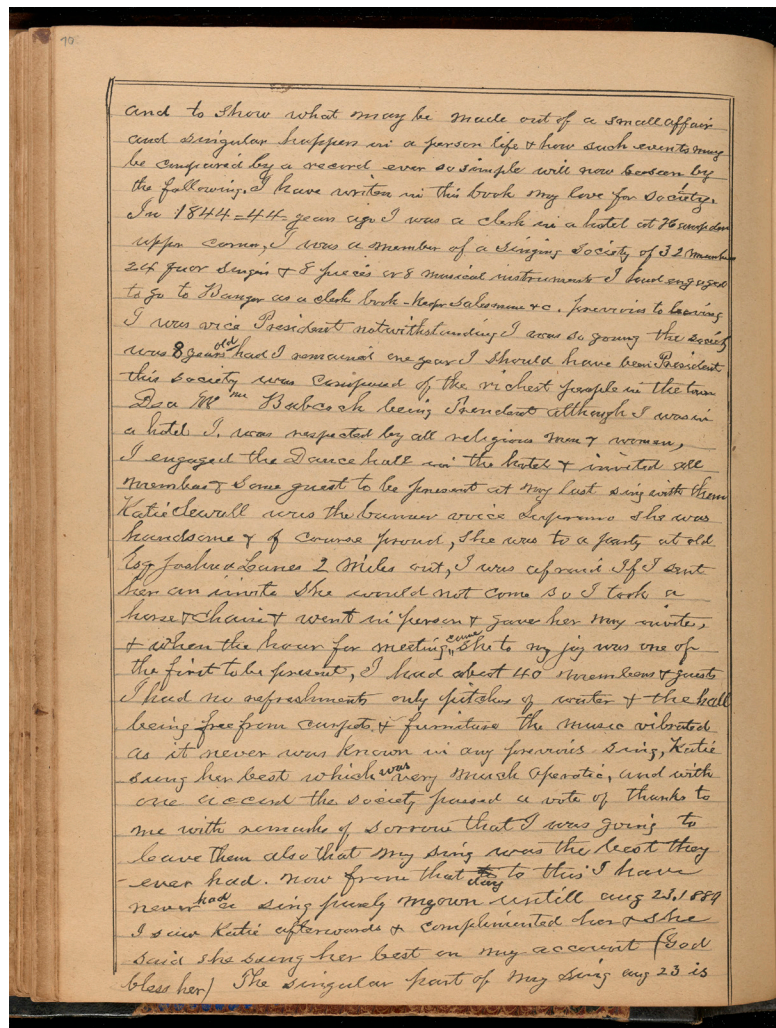 70
and to show what may be made out of a small affair
and singular happen in a person life & how such events may
be compared by a record ever so simple will now be seen by
the following. I have writen in this book my love for society.
In 1844 = 44 = years ago I was a clerk in a hotel at Hampden
upper corner, I was a member of a Singing Society of 32 members
24 quor singers & 8 pieces or 8 musical instruments I had engaged
to go to Bangor as a clerk book-keeper Salesman &c. previous to leaving
I was vice President notwithstanding I was so young the society
was 8 years old had I remained one year I should have been President
this society was composed of the richest people in the town
Dea Wm Babcock being President although I was in
a hotel I. was respected by all religious men & women,
I engaged the Dance hall in the hotel & invited all
members & some guest to be present at my last sing with them
Katie Sewall was the banner voice Supprano she was
handsome & of course proud, she was to a party at old
Esq Joshua Lanes 2 miles out, I was afraid If I sent
her an invite she would not come so I took a
horse & chaise & went in person & gave her my invite,
& when the hour for meeting came she to my joy was one of
the first to be present, I had about 40 members & guests
I had no refreshments only pitcher of water & the hall
being free from carpets & furniture the music vibrated
as it never was known in any previous sing, Katie
sung her best which was very much operatic, and with
one accord the society passed a vote of thanks to
me with remarks of sorrow that I was going to
leave them also that my sing was the best they
ever had. now from that day to this I have
never had a sing purely my own untill aug 23, 1889
I saw Katie afterwards & complimented her & she
said she sung her best on my account (God
bless her) The singular part of my sing aug 23 is